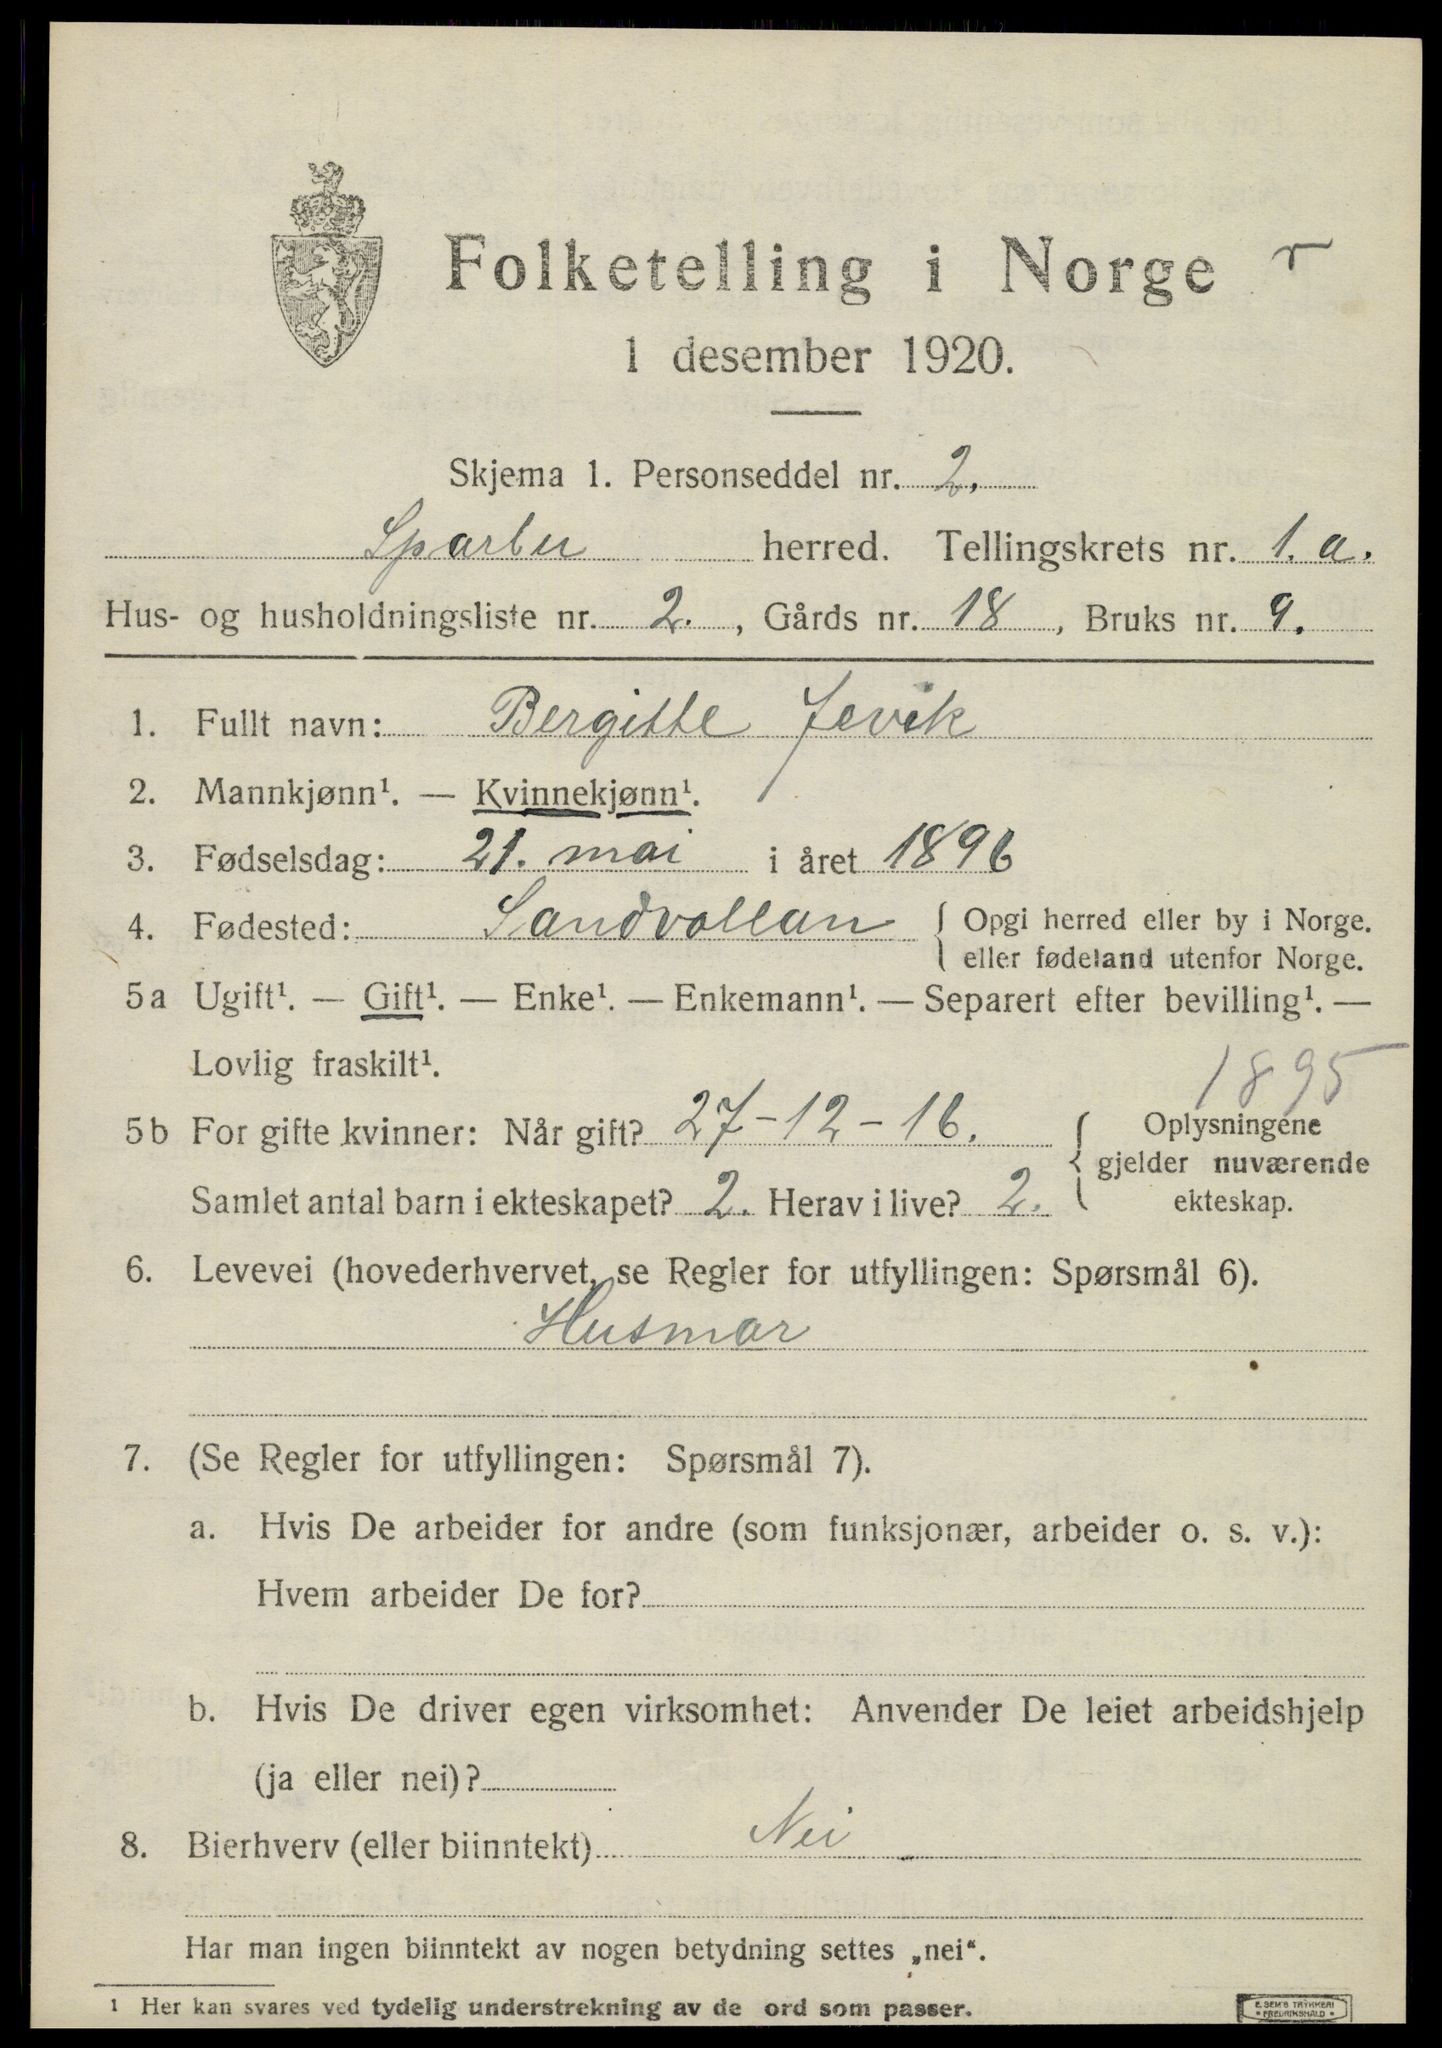 Folketelling i Norge
1 desember 1920.
Skjema 1. Personseddel nr. 2.
Sparbu herred. Tellingskrets nr. 1.a.
Hus- og husholdningsliste nr. 2., Gårds nr. 18, Bruks nr. 9.
1. Fullt navn: Bergitte Jevik
2. Mannkjønn¹. — Kvinnekjønn¹.
3. Fødselsdag: 21. mai i året 1896
4. Fødested: Sandvollan { Opgi herred eller by i Norge.
eller fødeland utenfor Norge.
5a Ugift¹. — Gift¹. — Enke¹. — Enkemann¹. — Separert efter bevilling¹. —
Lovlig fraskilt¹.
1895
5b For gifte kvinner: Når gift? 27-12-16. { Oplysningene
gjelder nuværende
Samlet antal barn i ekteskapet? 2. Herav i live? 2. ekteskap.
6. Levevei (hovederhvervet, se Regler for utfyllingen: Spørsmål 6).
Husmor
7. (Se Regler for utfyllingen: Spørsmål 7).
a. Hvis De arbeider for andre (som funksjonær, arbeider o. s. v.):
Hvem arbeider De for?
b. Hvis De driver egen virksomhet: Anvender De leiet arbeidshjelp
(ja eller nei)?
8. Bierhverv (eller biinntekt) Nei
Har man ingen biinntekt av nogen betydning settes „nei“.
¹ Her kan svares ved tydelig understrekning av de ord som passer.
E. SEM'S TRYKKERI
* FREDRIKSHALD *